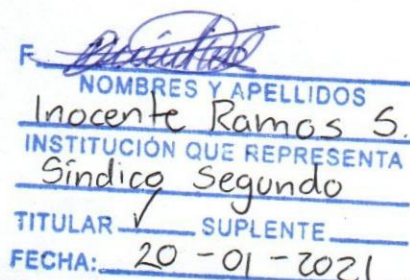 F.
NOMBRES Y APELLIDOS
Inocente Ramos S.
INSTITUCIÓN QUE REPRESENTA
Síndico Segundo
TITULAR ✓ SUPLENTE
FECHA: 20-01-2021